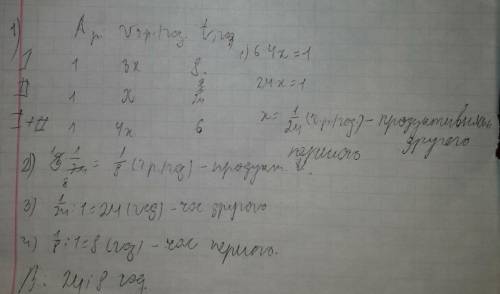 1) A, р. v, р/год t, год
I 1 3x 8
II 1 x 24
I+II 1 4x 6
1) 6·4x=1
24x=1
x= 1/24 (р/год) - продуктивність другого
2) 3·1/24 = 1/8 (р/год) - продукт. першого
3) 1/24 : 1=24 (год) - час другого
4) 1/8 : 1=8 (год) - час першого.
В: 24 і 8 год.